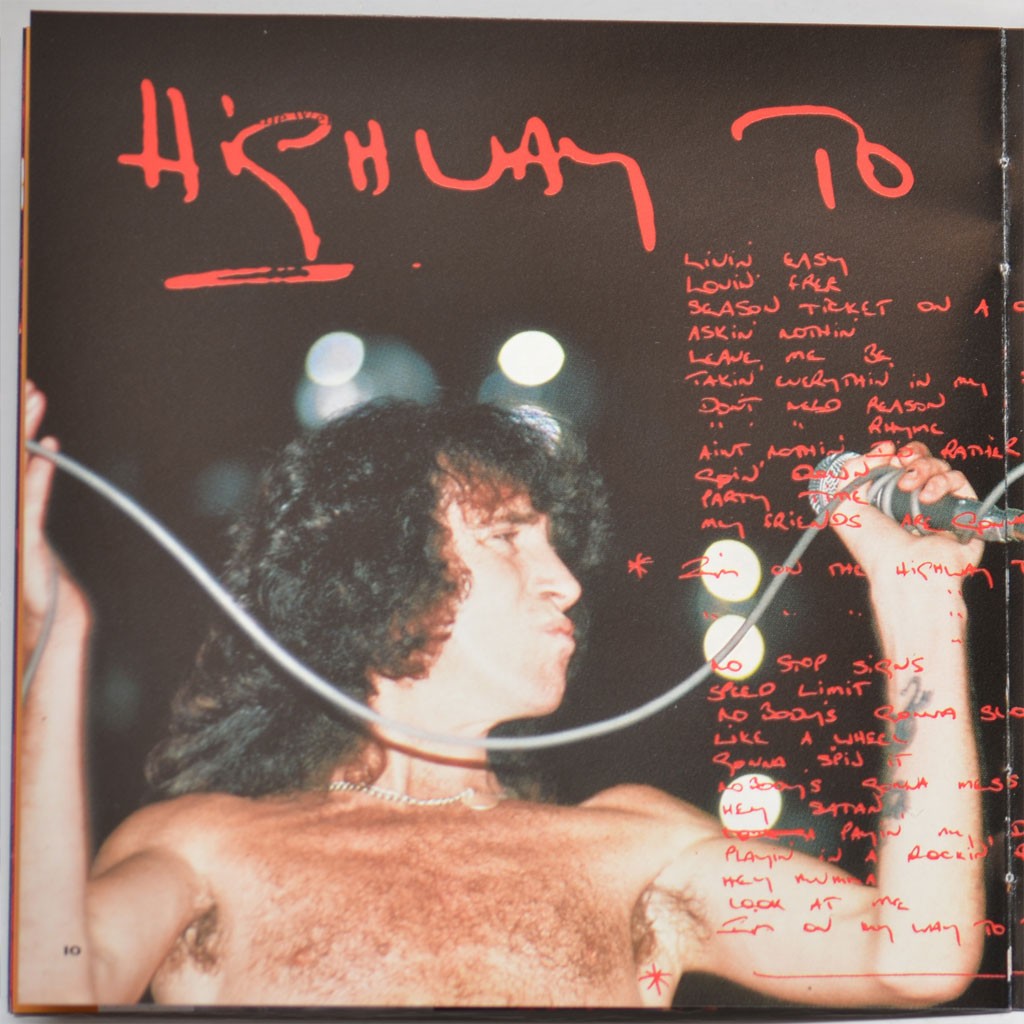 HiGHWAY TO
LIVIN' EASY
LOVIN' FREE
SEASON TICKET ON A
ASKIN NOTHIN
LEAVE ME BE
TAKIN EVERYTHIN' IN MY
DON'T NEED REASON
" " " RHYME
AINT NOTHIN RATHER
GOIN' DOWN
PARTY TIME
MY FRIENDS ARE GONNA
* I'm ON THE HIGHWAY T
" " " "
"
NO STOP SiGNS
SPEED LIMIT
NOBODYS GONNA SLO
LIKE A WHEEL
GONNA SPIN IT
NOBODYS GONNA MESS
HEY SATAN
PAYIN MY
PLAYIN' IN A ROCKIN'
HEY MUMMA
LOOK AT ME
I'm ON MY WAY TO
*
10